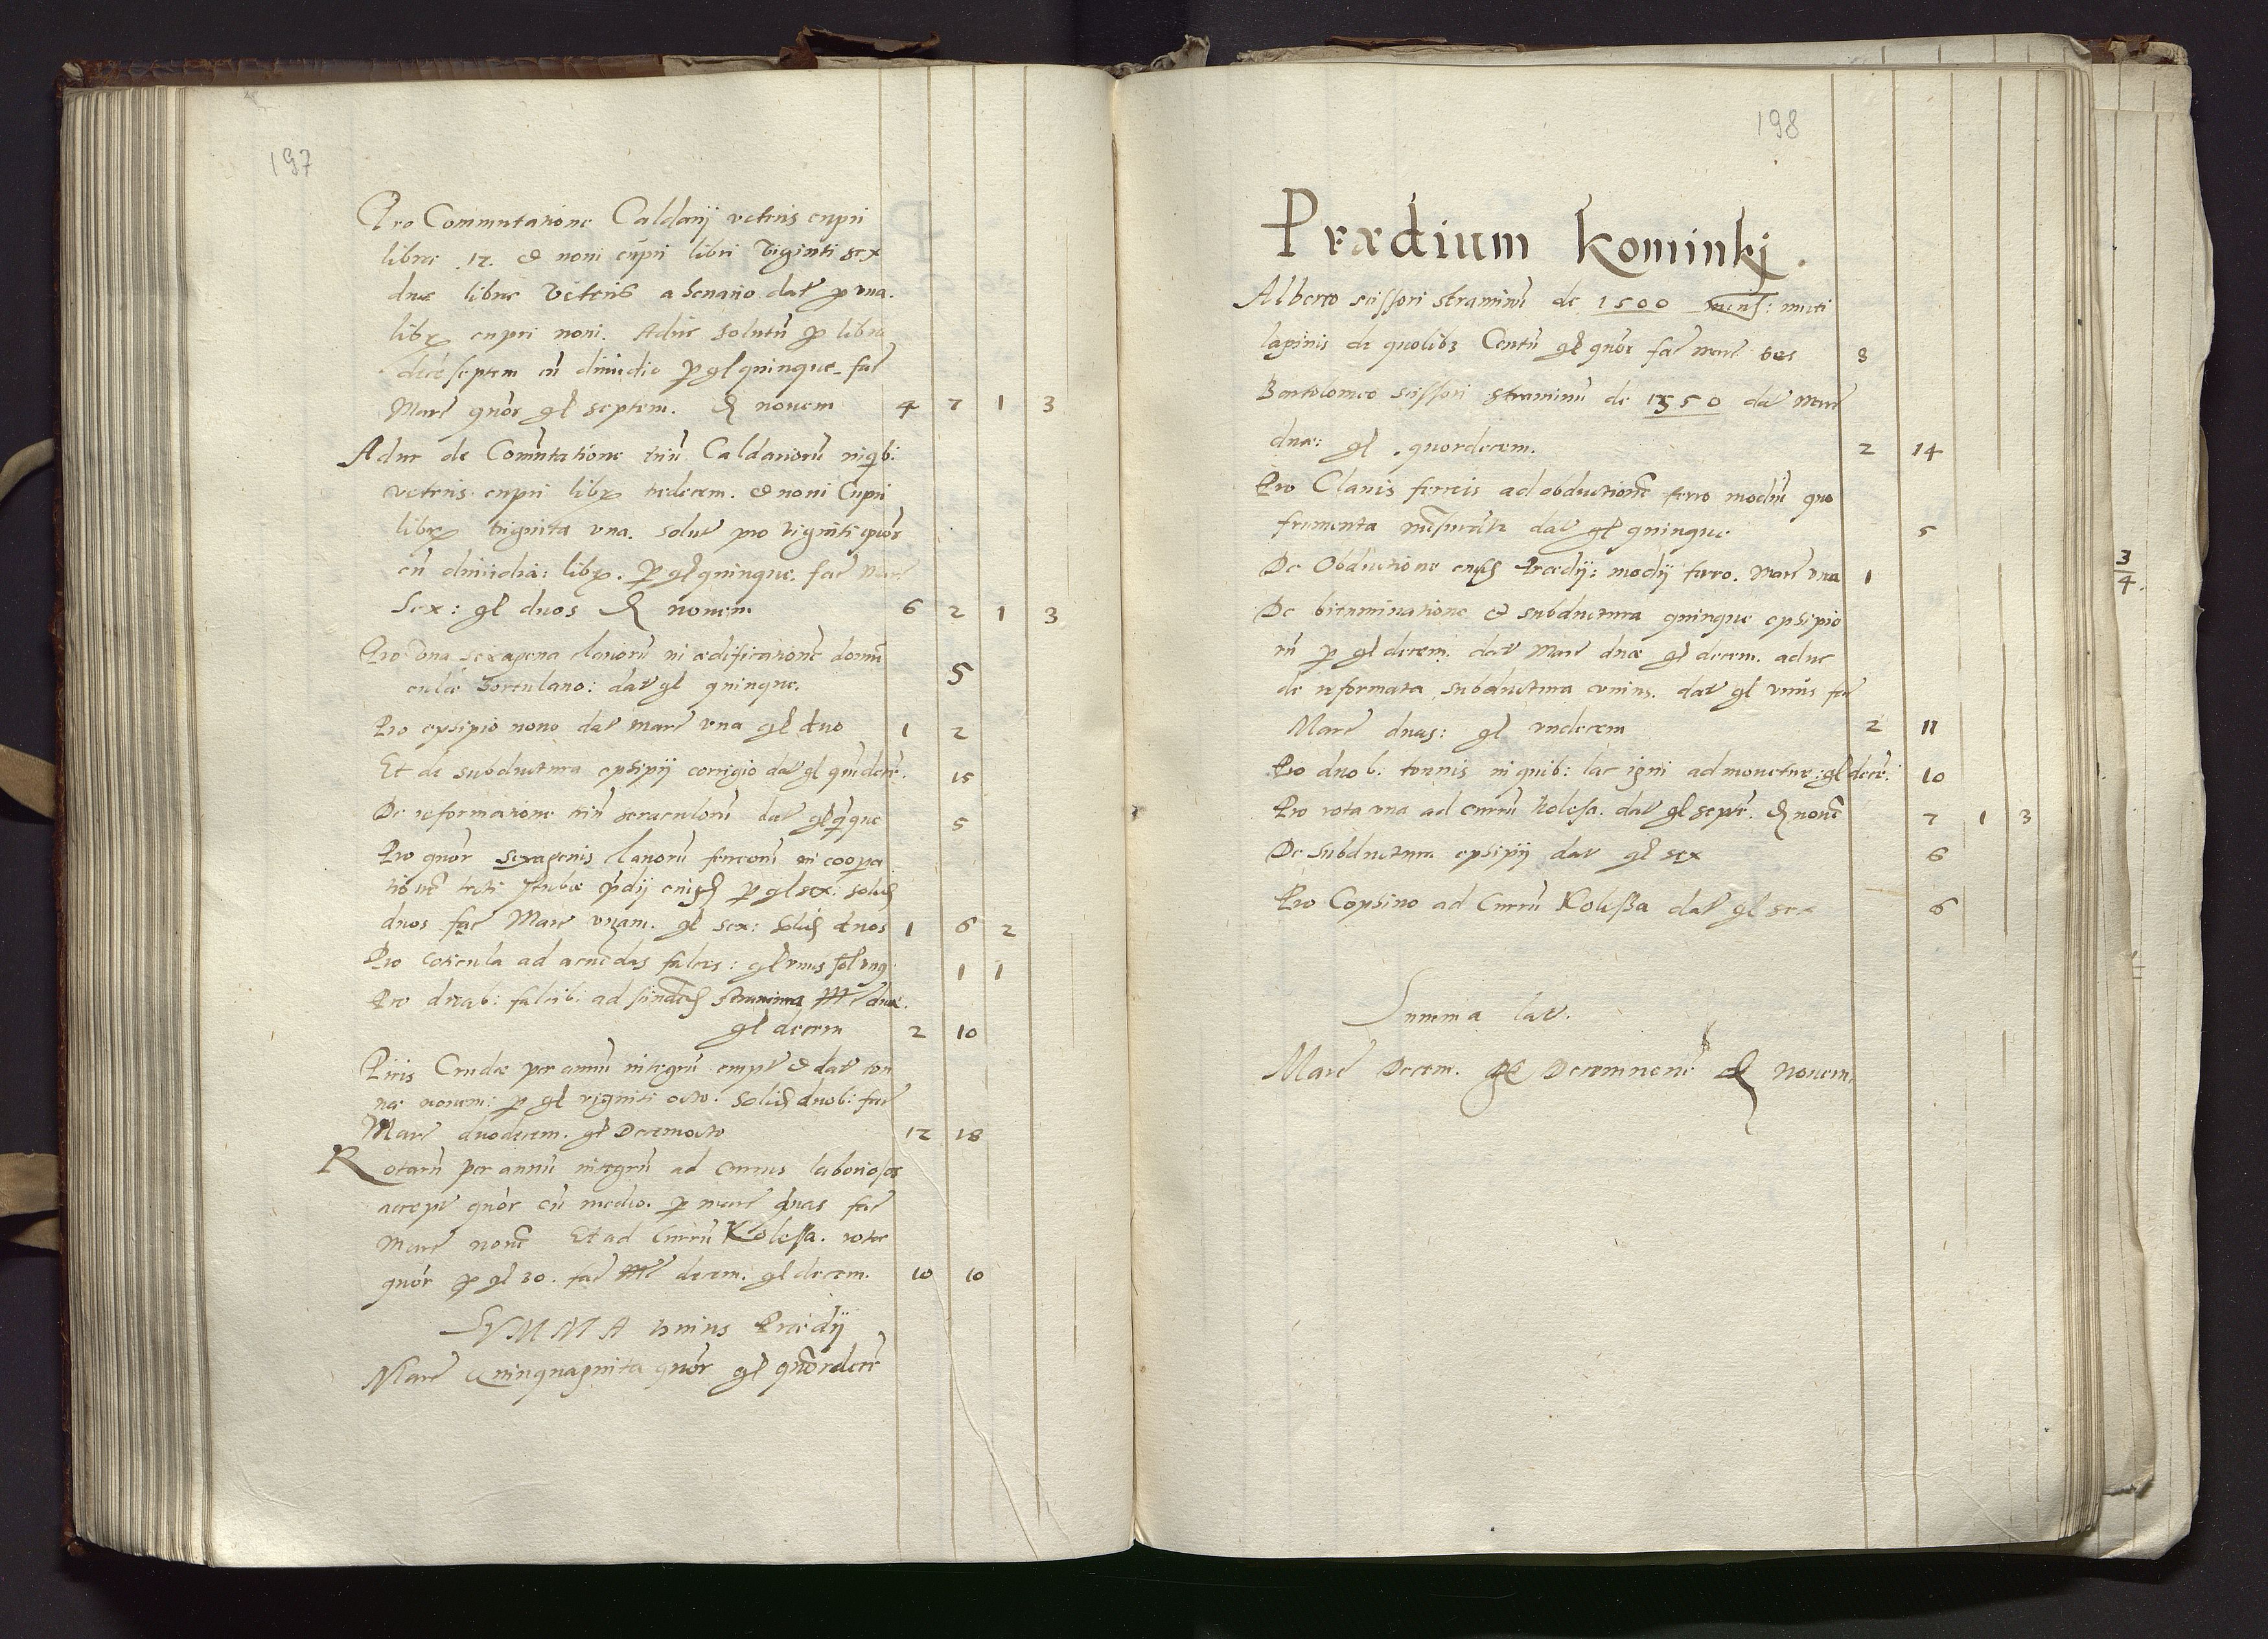 197
Pro Commutatione Caldarij veteris cupri
librae .17. et noui cupri libri viginti sex
duae librae veteris a senario dat p vna.
libr cupri noui. Aduc solutũ p libra
decẽ septem cũ dimidio p gł quinque fac
Marc quõr gł septem. novem 4 7 1 3
Aduc de Comũtatione triũ Caldariorũ
veteris cupri libr tredecem. et noui Cupri
libr triginta vna. solut pro viginti quõr
cũ dimidia: libr. p gł quinque. fac Marc
Sex: gł duos novem 6 2 1 3
Pro vna sexagena clauorũ in ædificationẽ domũ
culæ hortulano: dat gł quinque. 5
Pro epsipio nouo dat Marc vna gł duo 1 2
Et de subductura epsipij corrigio dat gł quĩdecẽ. 15
De reformatione triũ seraculorũ dat gł q̃que 5
Pro quõr sexagenis clauorũ ferreorũ in coopa
tionẽ tecti stubæ p̃dij p gł sex: solid
duos fac Marc vnam. gł sex: solid duos 1 6 2
Pro coticula ad acuẽdas falces: gł vnus 1 1
Pro duab: falcib: ad stramina duæ.
gł decem 2 10
Picis Crudæ per annũ integrũ empt et dat ton
næ novem: p gł viginti octo. solid duob: fac
Marc duodecem. gł Decemocto 12 18
Rotarũ per annũ integrũ ad currus laboriosos
accept quõr cũ medio. p marc duas fac
marc nouẽ Et ad Currũ Kolessa. rotae
quõr p gł 30. fac decem. gł decem. 10 10
SVMMA huius Prædij
Marc Quinquaginta quõr gł quõrdecẽ
198
Prædium Kominkj.
Alberto scissori straminũ de 1500 muti
lapinis de quolibz Centũ gł quõr fac marc 8
Bartolomeo scissori straminũ de 1350 dat marc
duæ: gł quordecem. 2 14
Pro Clauis ferreis ad obductionẽ ferro modiũ quo
frumenta dat gł quinque 5
De Obductione Prædij: modij ferro. marc vna 1
De bituminatione et subductura quinque epsipio
rũ p gł decem. dat Marc duæ gł decem. aduc
de reformata subductura vnius. dat gł vnus fac
Marc duas: gł vndecem 2 11
Pro duob: tonnis in quib: lac igni admouetur: gł decẽ: 10
Pro rota vna ad currũ Kolesa. dat gł septẽ. nouẽ 7 1 3
De subductura epsipij dat gł sex 6
Pro Copsino ad Currũ Kolessa dat gł sex 6
Summa lat.
Marc Decem. gł Decemnouẽ novem.
3
4